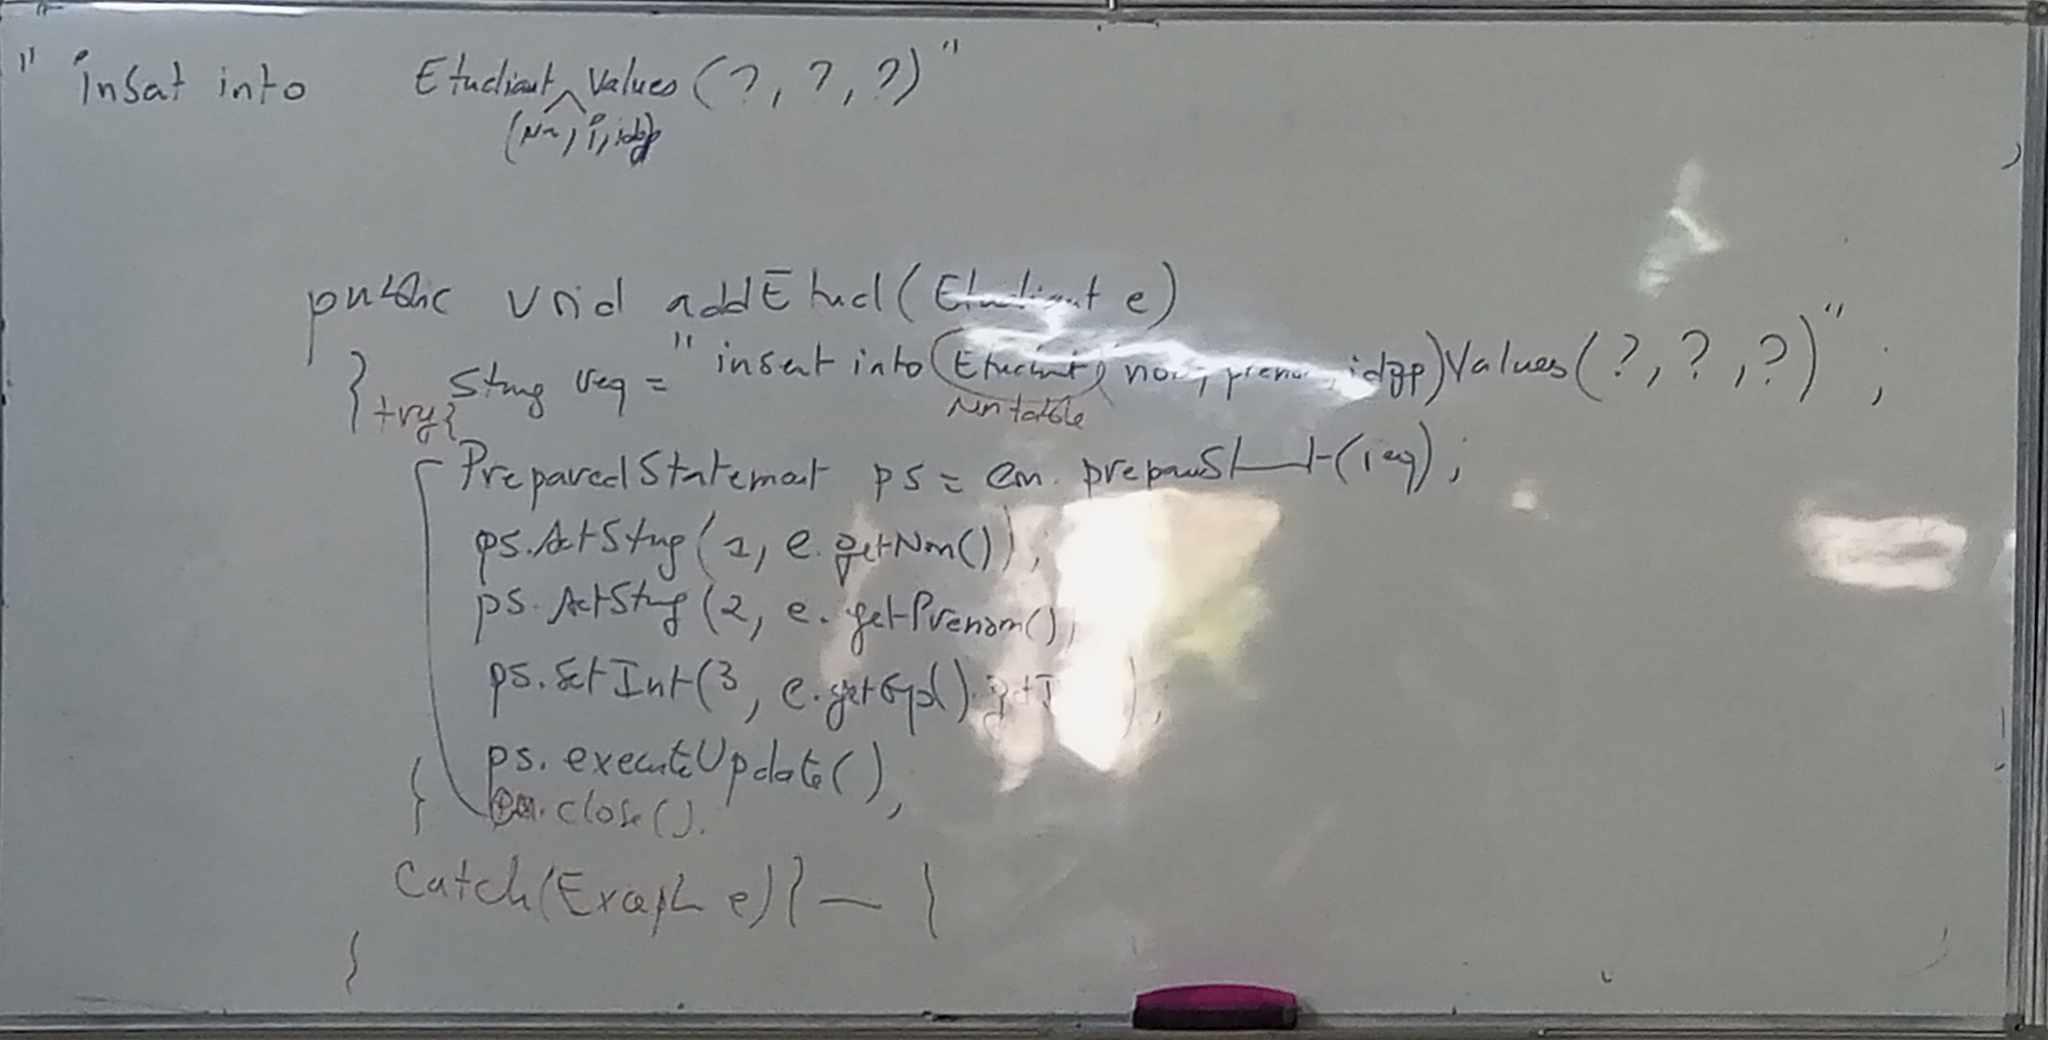 " insert into Etudiant values (?, ?, ?) "
public void addEtud(Etudiant e)
{ try{ String req = "insert into Etudiant( nom, prenom, idgp) Values(?, ?, ?)";
Nom table
PreparedStatement ps = cn.
ps.setString(1, e.getNom());
ps.setString(2, e.getPrenom());
ps.setInt(3,
ps.executeUpdate();
cn.close().
}
catch( e) { — }
}